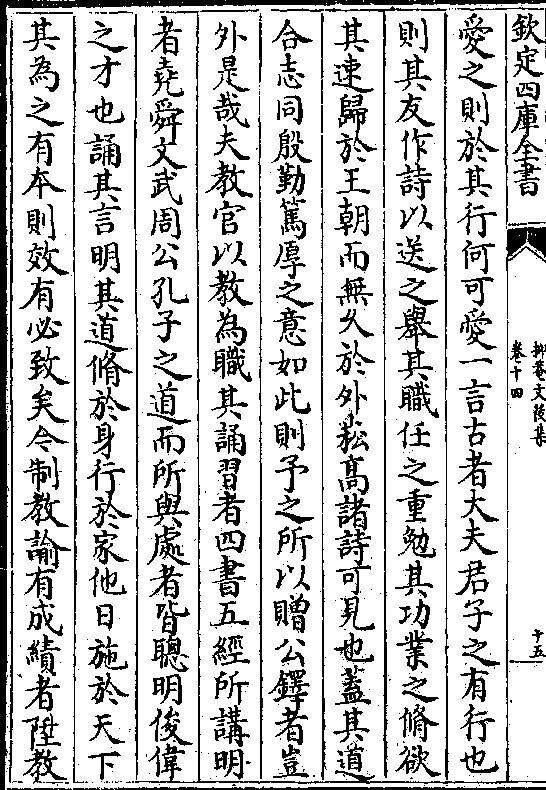 欽定四庫全書
抑菴文後集
卷十四
十五
愛之則於其行何可愛一言古者大夫君子之有行也
則其友作詩以送之舉其職任之重勉其功業之脩欲
其速歸於王朝而無久於外崧高諸詩可見也蓋其道
合志同殷勤篤厚之意如此則予之所以贈公鐸者豈
外是哉夫教官以教為職其誦習者四書五經所講明
者堯舜文武周公孔子之道而所與處者皆聰明俊偉
之才也誦其言明其道脩於身行於家他日施於天下
其為之有本則效有必致矣今制教論有成績者陞教